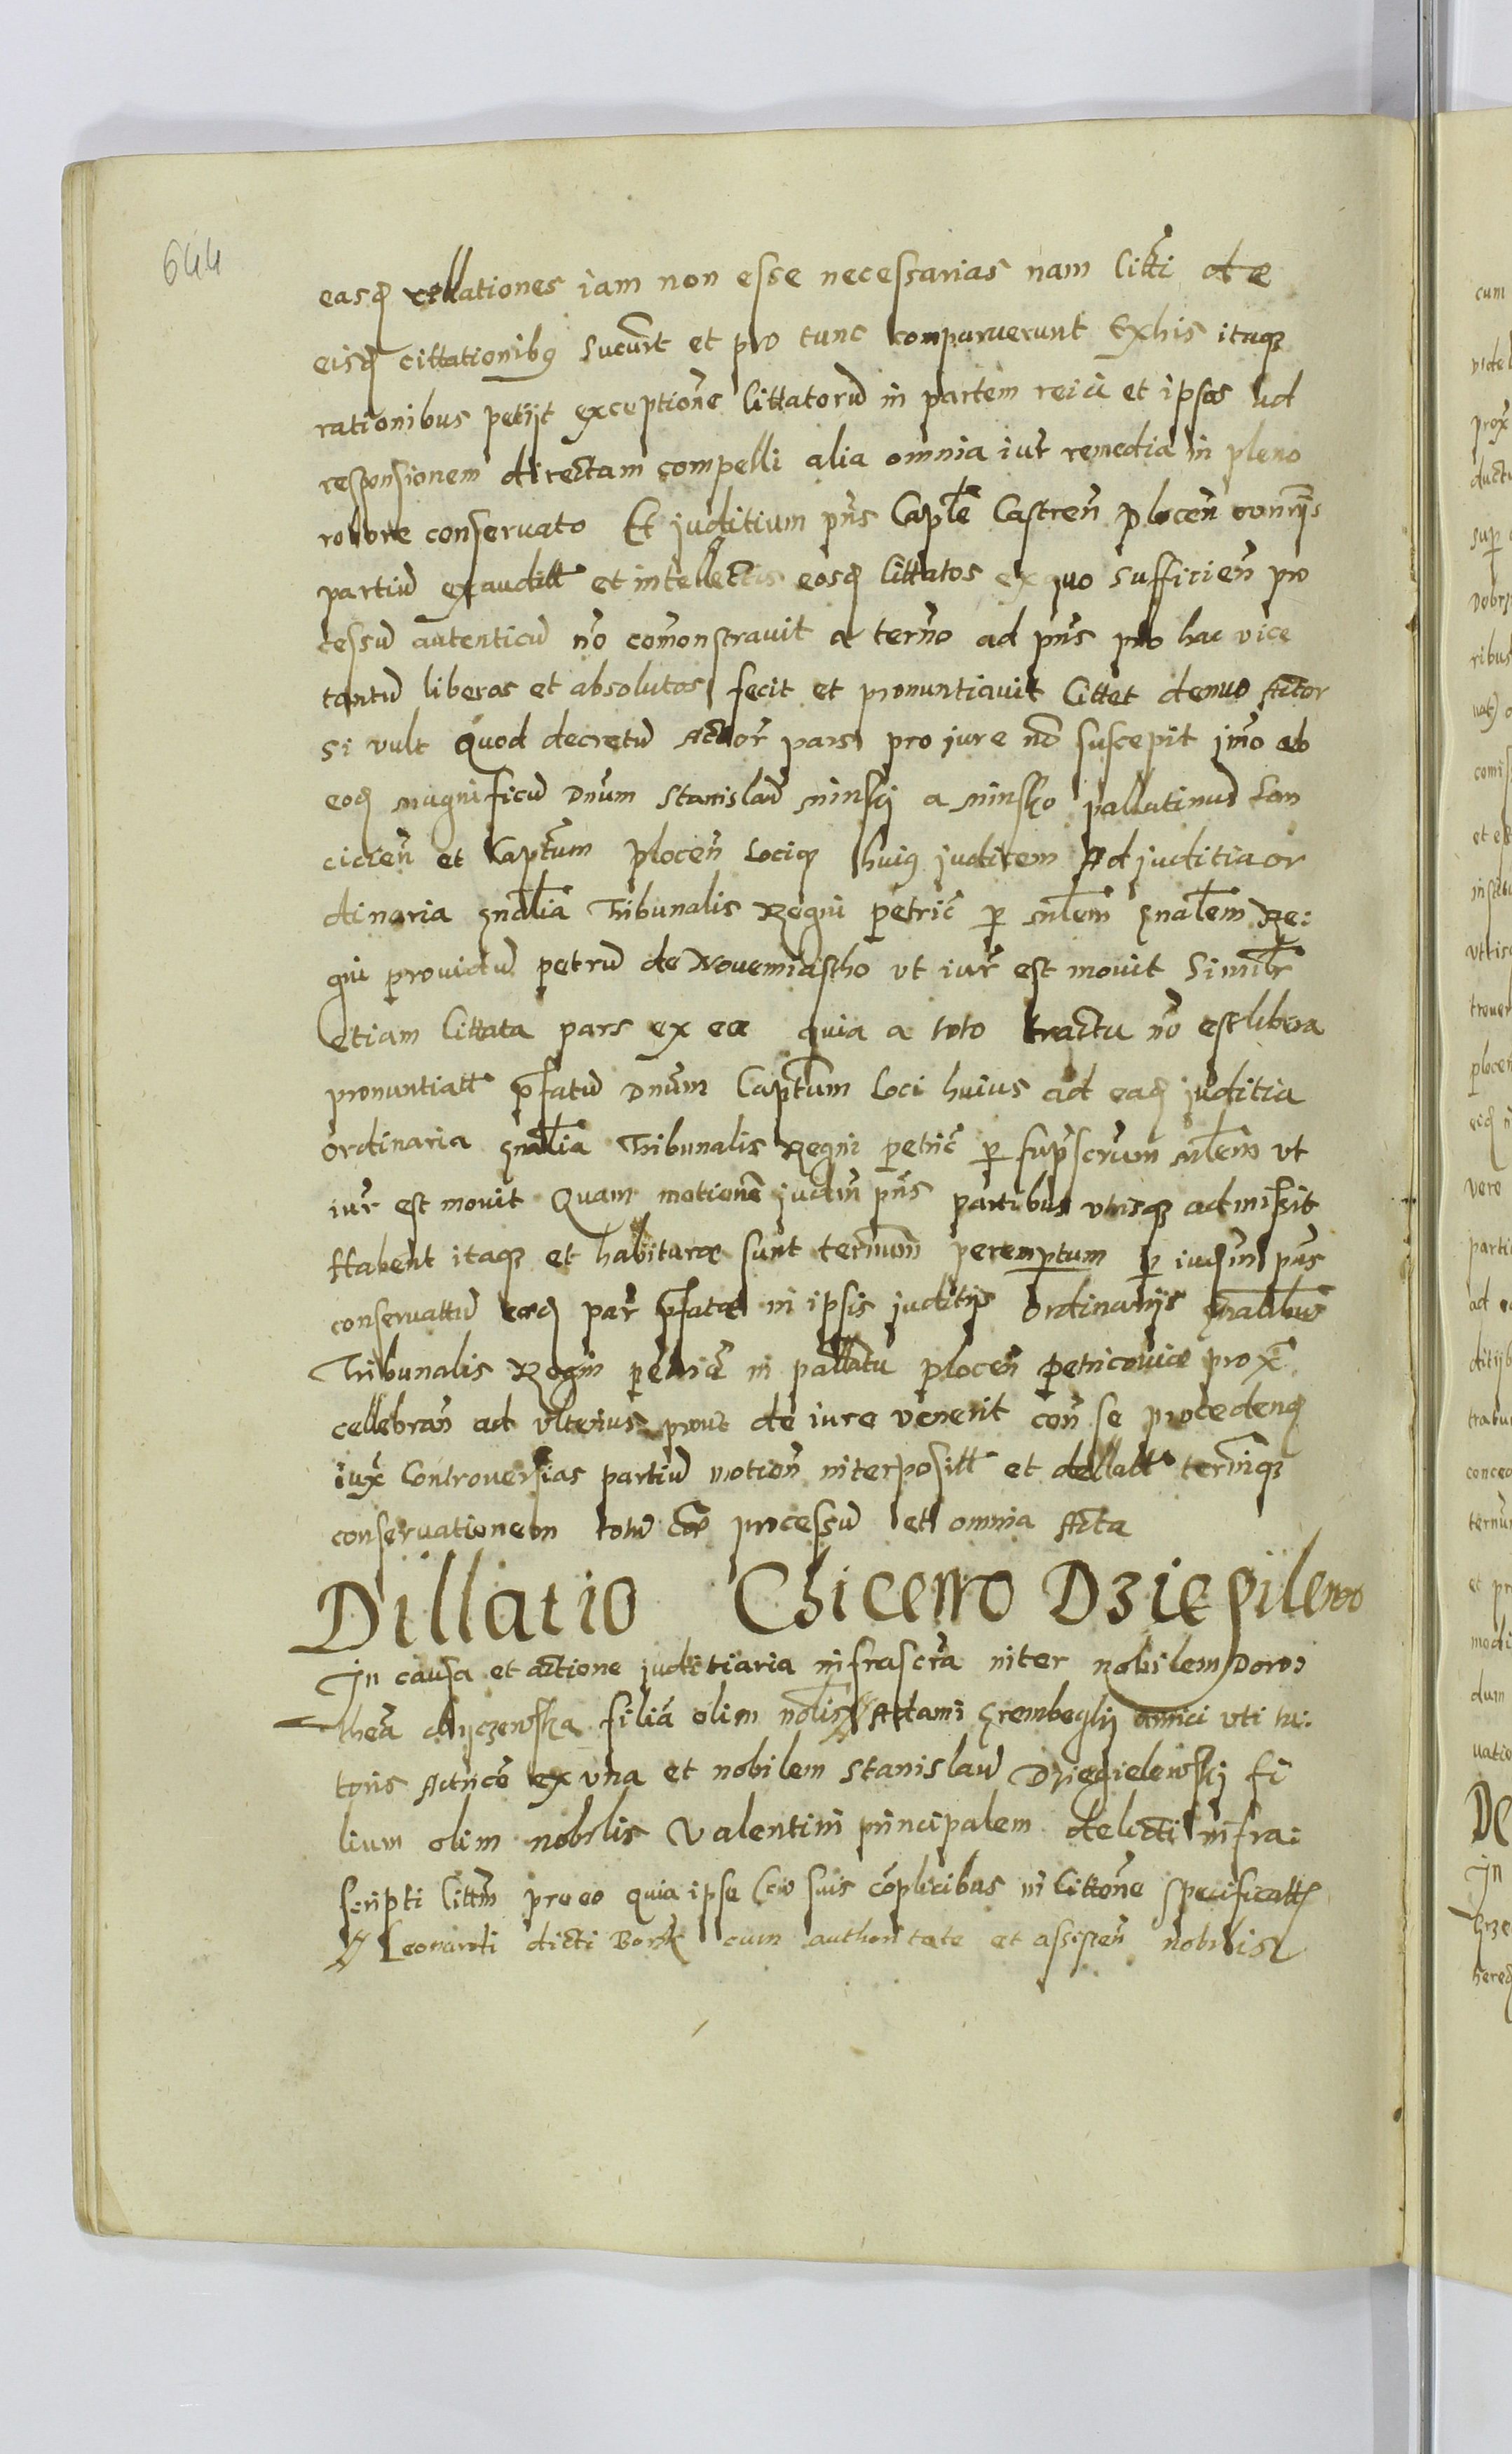 644
easq rellationes iam non esse necessarias nam litti de
eisq cittationibq sucurrt et pro tunc comparuerunt Exhis itaqz
rationibus petijt exceptione Cittatoru in partem reici et ipsos ad
responsionem directam compelli alia omnia iur remedia in pleno
robore conseruato Et juditium pns Caple Castren plocen
partiu exauditt et intellectis eosq Cittatos ex quo sufficien pro
cessu autenticu no comonstrauit a termo ad pns pro hac vice
tantu liberos et absolutos fecit et pronuntiauit Cittet denuo Actor
si vult Quod decretu Actor pars pro jure no suscepit jmo ab
eoq magnificu Dnum Stanislau minskj a minsko pallatinu Lan
cicien et Captum plocen Lociq huiq judicem Ad juditia or
dinaria gnalia Tribunalis Regni petric p mlem gnalem Re:
gni prouidu petru de Nouemiastho vt iur est mouit Similr
etiam Cittata pars ex eo quia a toto tractu no est libera
pronuntiatt pfatu Dnum Captum Loci huius ad eaq juditia
ordinaria gnalia Tribunalis Regni petric p supscrum mlem vt
iur est mouit Quam motione judm pns partibus vtrisqz admisit
Habent itaqz et habiturae sunt termum peremptum p iudm pns
conseruattu eaeq par pfatae in ipsis juditijs Ordinarijs gnalibus
Tribunalis Regni petric in pallatu plocen petricouiae prox
cellebran ad vlterius prout de iure venerit con se procedenq
iux Controuersias partiu motion interpositt et dellatt termiqz
conseruationem totu processu et omnia Acta
Dillatio Chicewo Dziegilewo
In causa et actione juditiaria infrascra inter nobilem Doro:
thea chyczewska filia olim nolis Adami Grembeglij amici vti tu:
toris Actrice ex vna et nobilem Stanislau Dziegielewskj fi
lium olim nobilis Valentini principalem delicti infra:
scripti Cittm pro eo quia ipse cu suis coplicibus in Cittone specificatt
Leonardi dicti Borsk cum authoritate et assisten nobilis